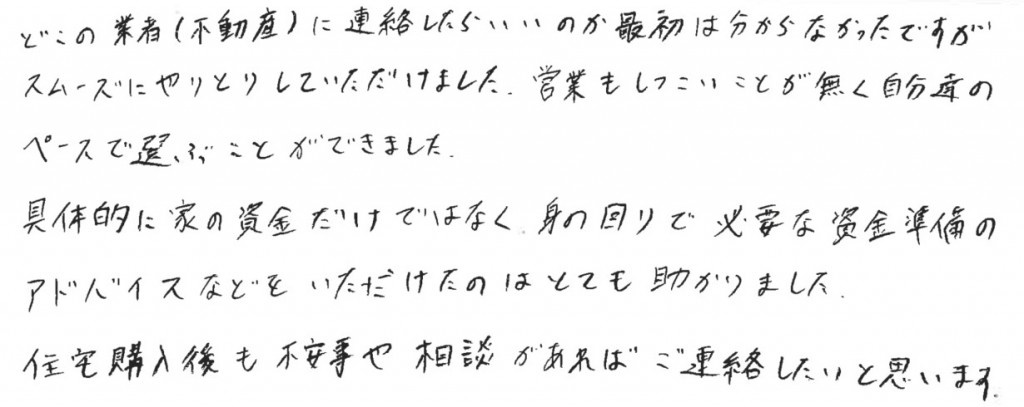 どこの業者(不動産)に連絡したらいいのか最初は分からなかったですが
スムーズにやりとりしていただけました。営業もしつこいことが無く自分達の
ペースで選ぶことができました。
具体的に家の資金だけではなく、身の回りで必要な資金準備の
アドバイスなどをいただけたのはとても助かりました。
住宅購入後も不安事や相談があればご連絡したいと思います。